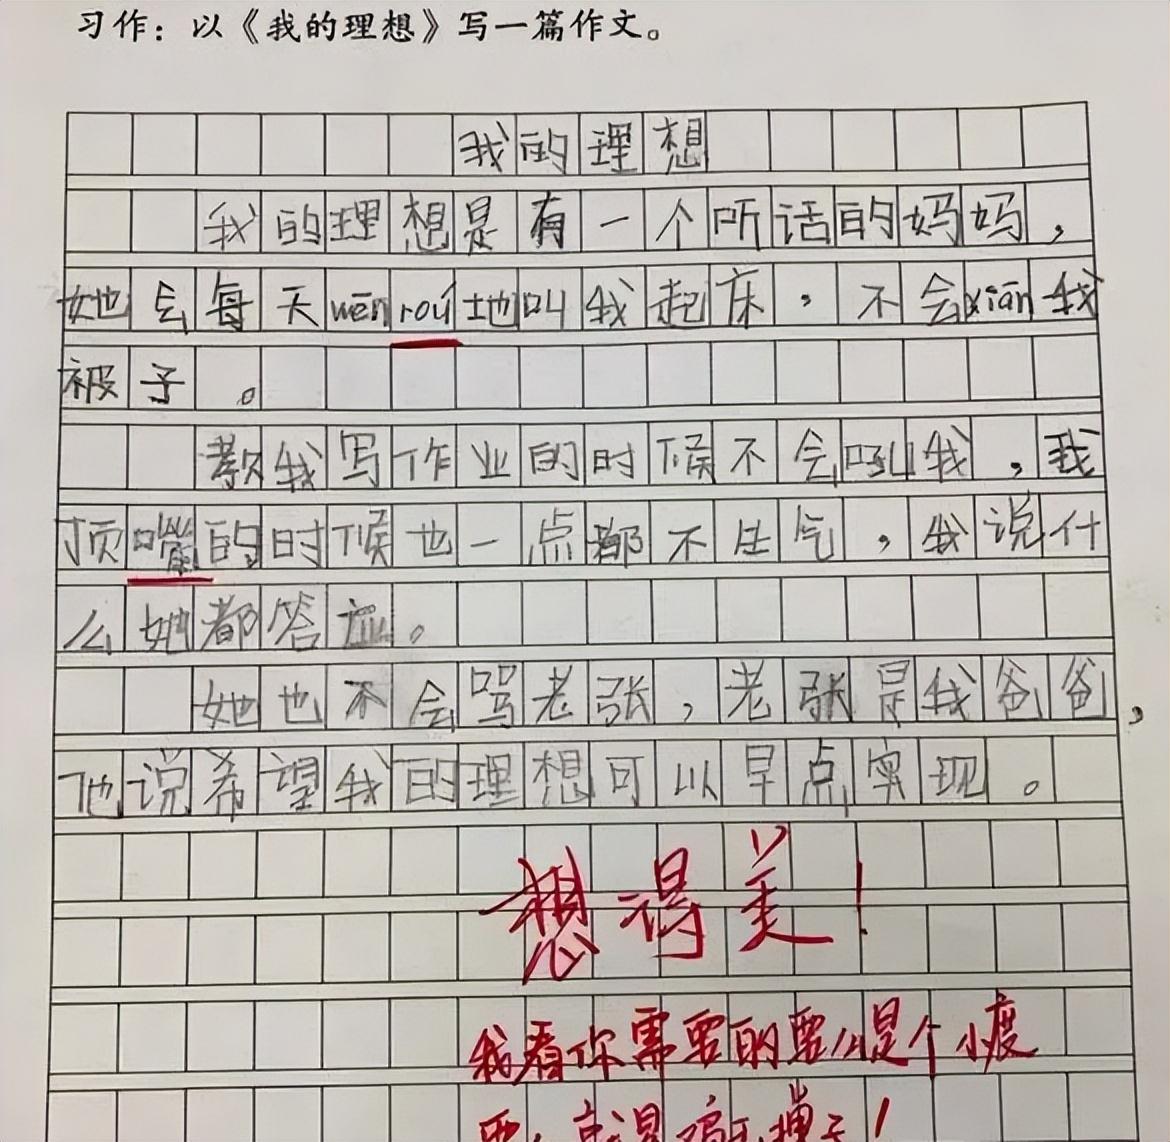 习作：以《我的理想》写一篇作文。
我的理想
我的理想是有一个听话的妈妈，
她会每天wēnroú地叫我起床，不会xiān我
被子。
教我写作业的时候不会吼我，我
顶嘴的时候也一点都不生气，我说什
么她都答应。
她也不会骂老张，老张是我爸爸，
他说希望我的理想可以早点实现。
想得美！
我看你需要的要么是个小度
要么就是鸡毛掸子！